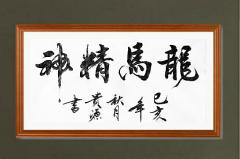 龍馬精神
己亥
年
秋月
貴源
書